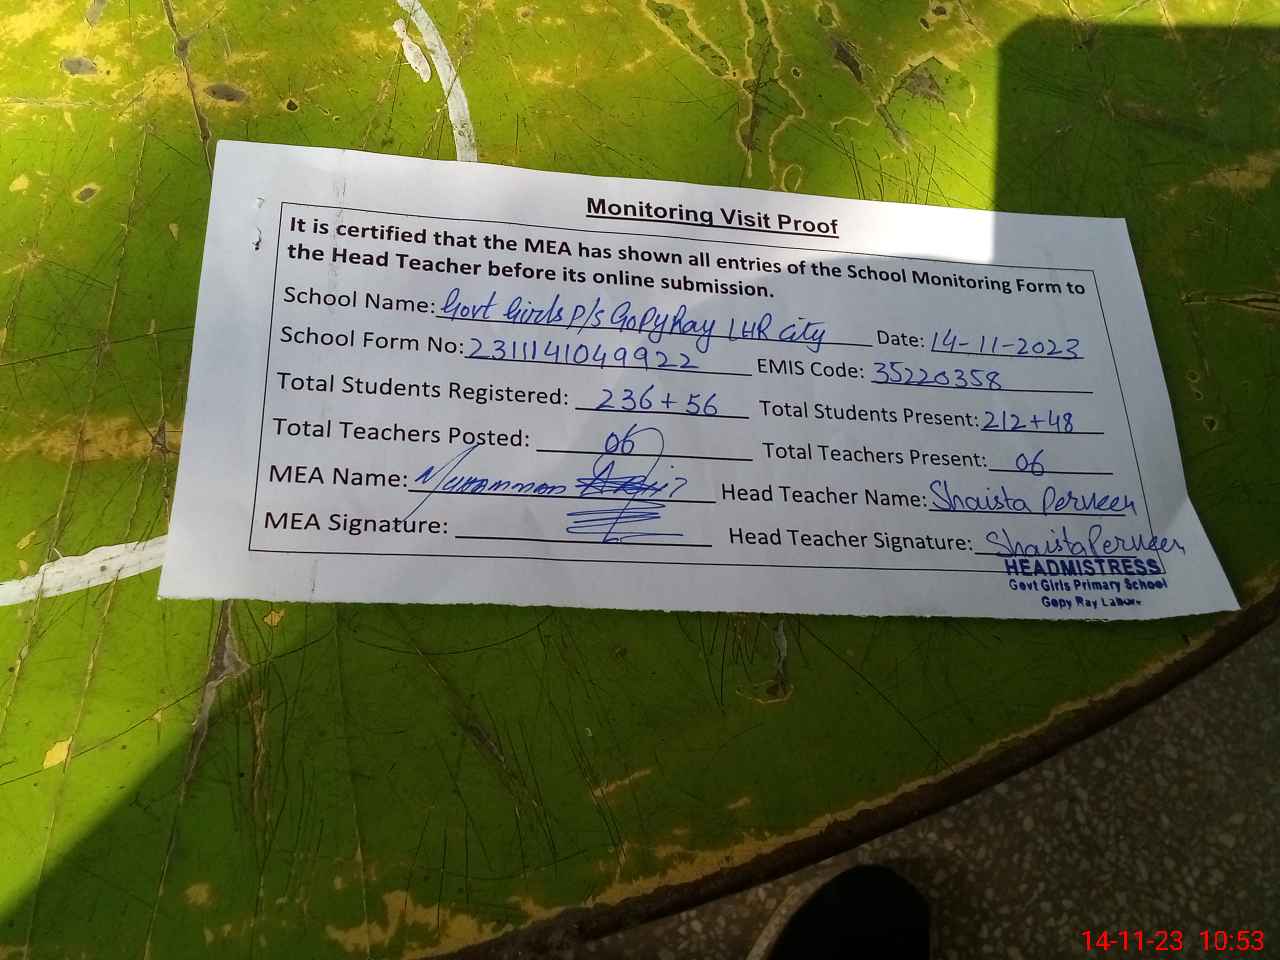 Monitoring Visit Proof
It is certified that the MEA has shown all entries of the School Monitoring Form to
the Head Teacher before its online submission.
School Name: Govt Girls P/S Gopy Ray LHR City Date: 14-11-2023
School Form No: 2311141049922 EMIS Code: 35220358
Total Students Registered: 236+56 Total Students Present: 212+48
Total Teachers Posted: 06 Total Teachers Present: 06
MEA Name: Muhammad Head Teacher Name: Shaista Perveen
MEA Signature: Head Teacher Signature: Shaista Perveen
HEADMISTRESS
Govt Girls Primary School
Gopy Ray Lahore
14-11-23 10:53